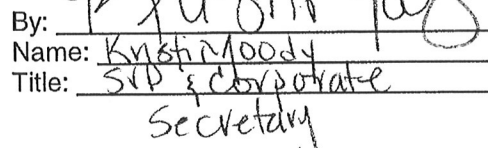 By:
Name: Kristi Moody
Title: SVP & Corporate
Secretary